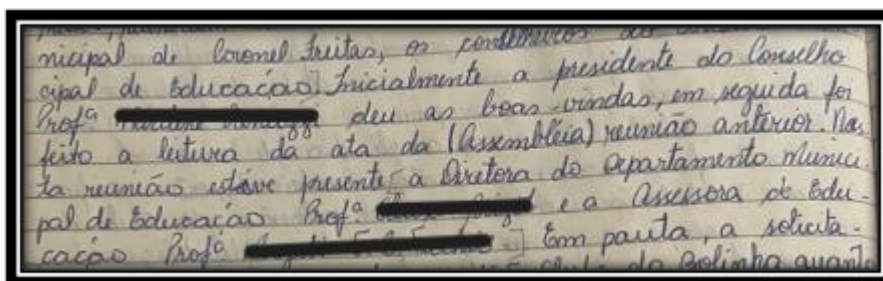 nicipal de Coronel Freitas, os conselheiros do
cipal de Educação] Inicialmente a presidente do Conselho
Profª deu as boas-vindas, em seguida foi
feito a leitura da ata da (Assembléia) reunião anterior. Nes
ta reunião estave presente [a Diretora do Departamento Munici
pal de Educação Profª e a Assessora de Edu-
cação Profª ] Em pauta, a solicita-
da Bolinha quanto